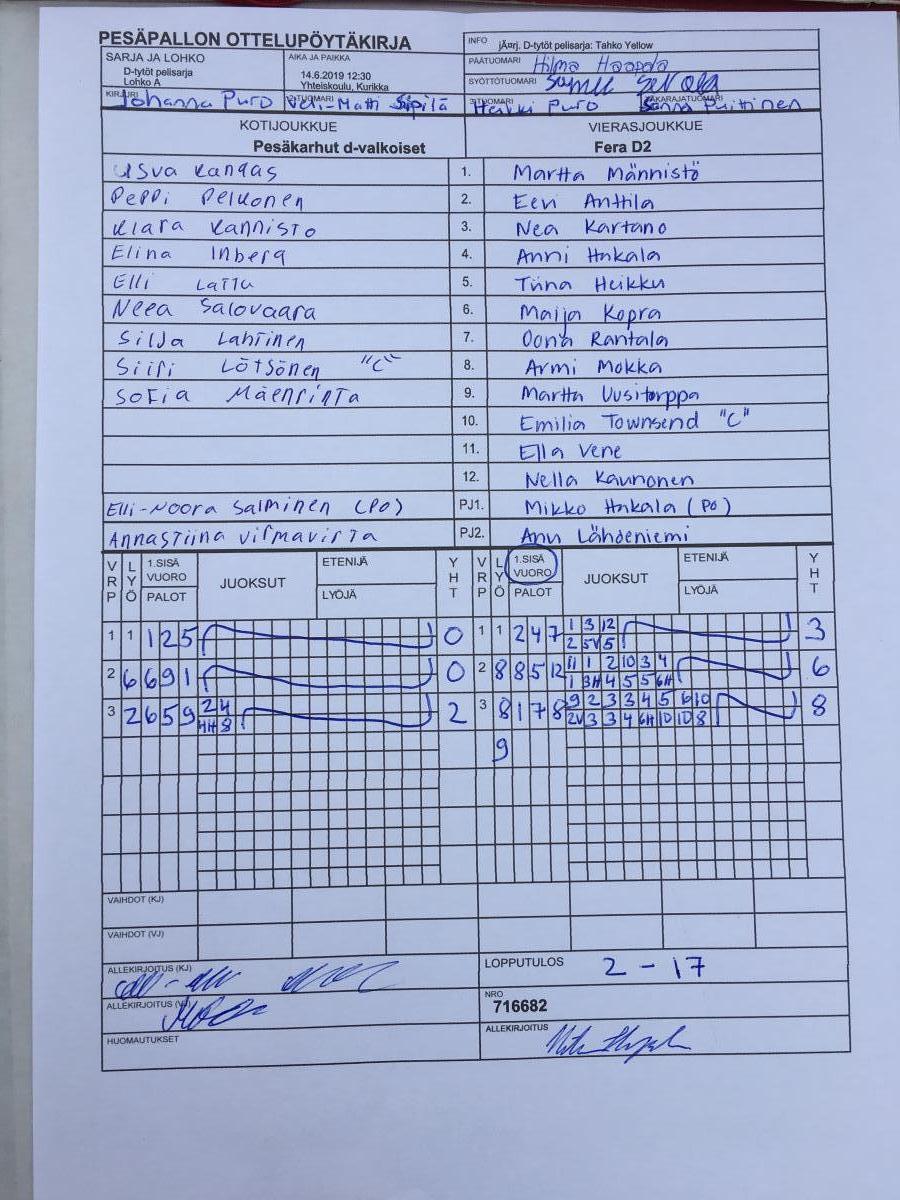 PESÄPALLON OTTELUPÖYTÄKIRJA
INFO jÄ¤rj. D-tytöt pelisarja: Tahko Yellow
SARJA JA LOHKO
D-tytöt pelisarja
Lohko A
AIKA JA PAIKKA
14.6.2019 12:30
Yhteiskoulu, Kurikka
PÄÄTUOMARI Hilma Haapola
SYÖTTÖTUOMARI
KIRJURI Johanna Puro
2-TUOMARI Veli-Matti Sipilä
3-TUOMARI Heikki Puro
TAKARAJATUOMARI Sanna Puittinen
KOTIJOUKKUE VIERASJOUKKUE
Pesäkarhut d-valkoiset Fera D2
Usva Kangas 1. Martta Männistö
Peppi Pelkonen 2. Eevi Anttila
Klara Kannisto 3. Nea Kartano
Elina Inberg 4. Anni Hakala
Elli Latta 5. Tiina Heikku
Neea Salovaara 6. Maija Kopra
Silja Lahtinen 7. Oona Rantala
Siiri Lötsönen "C" 8. Armi Mokka
Sofia Mäenrinta 9. Martta Uusitorppa
10. Emilia Townsend "C"
11. Ella Vene
12. Nella Kaunonen
Elli-Noora Salminen (PO) PJ1. Mikko Hakala (PO)
Annastiina Virmavirta PJ2. Anu Lähdeniemi
VRP LYÖ 1.SISÄ VUORO PALOT JUOKSUT ETENIJÄ LYÖJÄ YHT VRP LYÖ 1.SISÄ VUORO PALOT JUOKSUT ETENIJÄ LYÖJÄ YHT
1 1 1 2 5 0 1 1 2 4 7 1 3 12 3
2 5V 5
2 6 6 9 1 0 2 8 8 5 12 11 1 2 10 3 4 6
1 3H 4 5 5 6H
3 2 6 5 9 2 4 2 3 8 1 7 8 9 2 3 3 4 5 6 10 8
4H 8 2V 3 3 4 6H 10 10 8
9
VAIHDOT (KJ)
VAIHDOT (VJ)
ALLEKIRJOITUS (KJ)
LOPPUTULOS 2 - 17
ALLEKIRJOITUS (VJ)
NRO
716682
HUOMAUTUKSET
ALLEKIRJOITUS